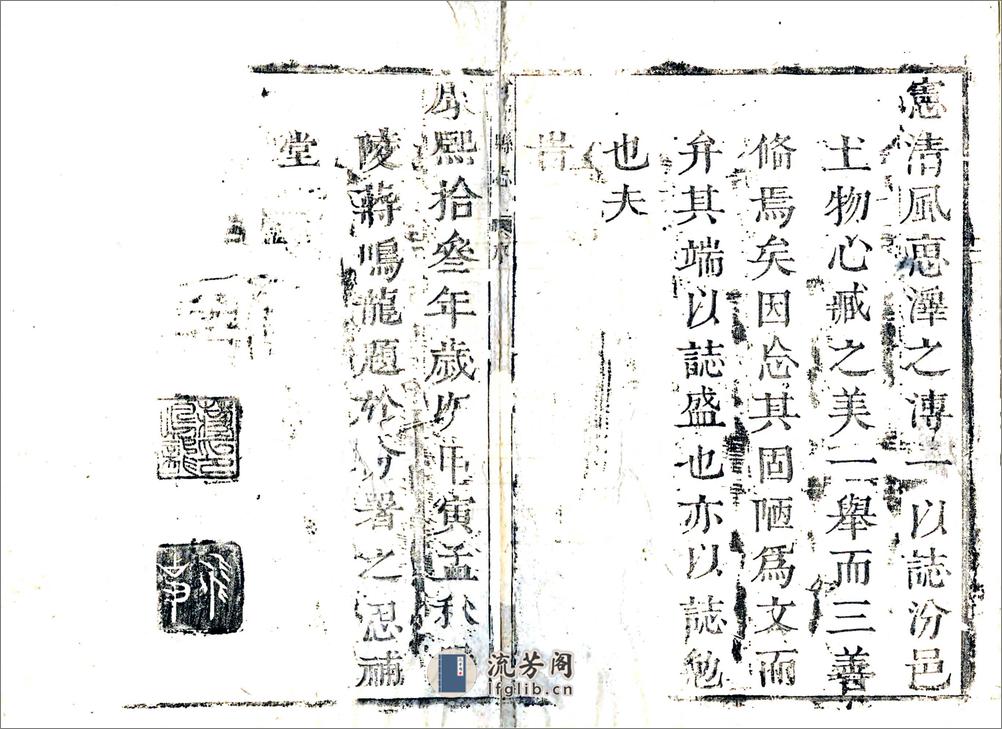 憲清風惠澤之傳一以誌汾邑
土物心臧之美一舉而三善
脩焉矣因忘其固陋爲文而
弁其端以誌盛也亦以誌勉
也夫
旹
康熙拾叁年歲次甲寅孟秋
陵蔣鳴龍題於汾署之思補
堂
縣志
流芳阁
lfglib.cn